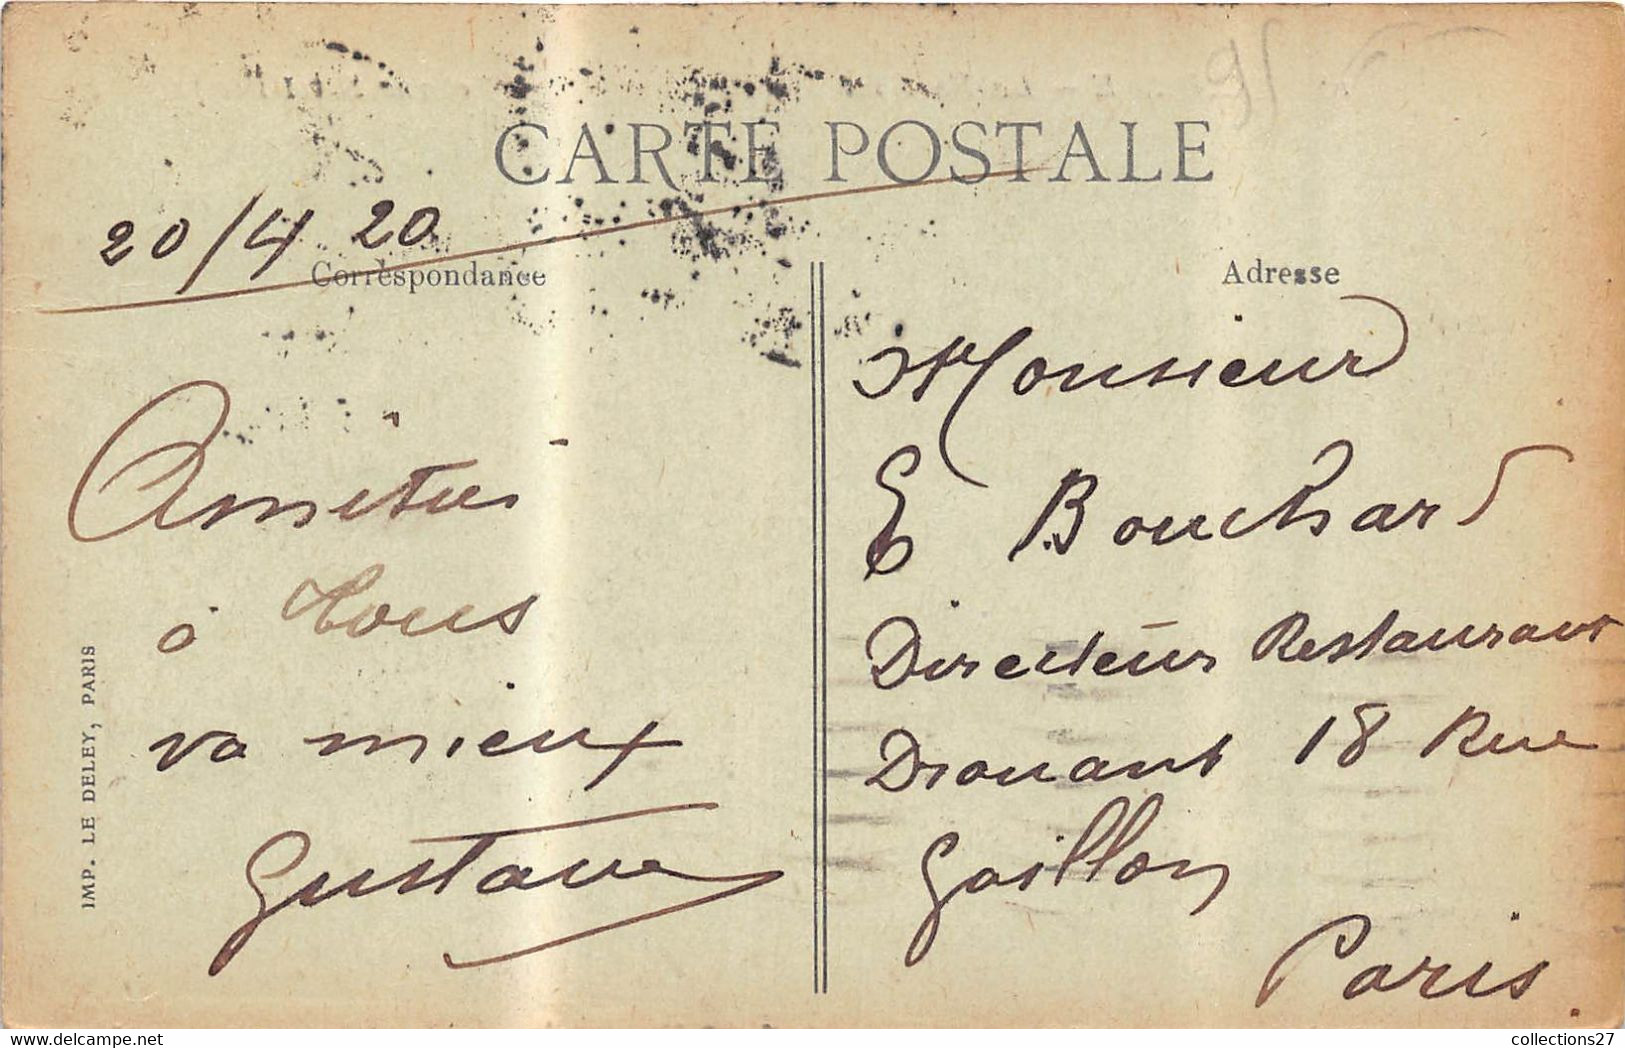 95
CARTE POSTALE
20/4 20
Correspondance
Adresse
Amitiés
à tous
va mieux
Gustave
Monsieur
E Bouchard
Directeur Restaurant
Drouant 18 Rue
Gaillon
Paris.
IMP. LE DELEY, PARIS
collections27